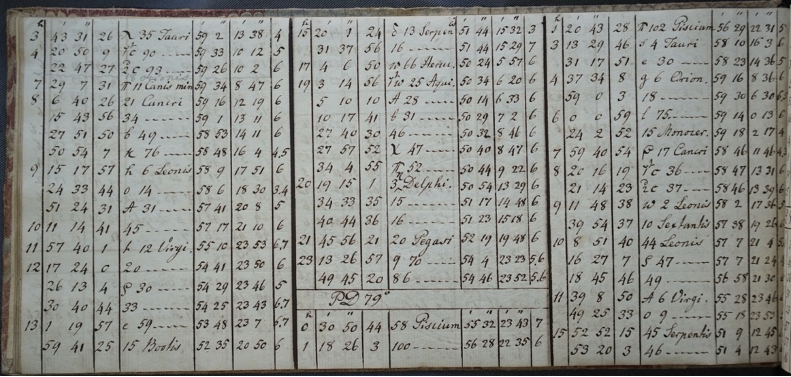 h ' " ° ' ° '
3 43 31 26 χ 35 Tauri 59 2 13 38 4
4 20 50 9 90 59 33 10 12 5
22 47 27 2 c 93 59 26 10 2 6
7 29 7 31 π 11 Canis min 59 34 8 47 6
8 6 40 26 21 Cancri 59 16 12 19 6
15 43 56 34 59 1 13 11 6
27 51 50 b 49 58 53 14 11 6
50 54 7 κ 76 58 48 16 4 4,5
9 15 17 57 h 6 Leonis 58 9 17 51 6
24 33 44 o 14 58 6 18 30 3,4
51 24 31 A 31 57 41 20 8 5
10 11 14 41 45 57 17 21 10 6
11 57 40 1 b 12 Virgi. 55 10 23 53 6,7
12 17 24 0 20 54 41 23 50 6
26 13 4 ρ 30 54 29 23 46 5
30 40 44 33 54 25 23 43 6,7
13 1 19 57 c 59 53 48 23 7 6,7
59 41 25 15 Bootis 52 35 20 50 6
15 20 1 24 13 Serpen 51 44 15 32 3
31 37 56 16 51 44 15 29 7
17 4 6 50 66 50 24 5 57 6
19 3 14 56 25 Aqui. 50 34 6 20 6
5 10 10 A 28 50 14 6 33 6
10 17 41 b 31 50 29 7 2 6
27 40 30 46 50 32 8 46 6
27 57 52 χ 47 50 40 8 47 6
34 4 55 π 52 50 44 9 22 6
20 19 15 1 3 Delphi. 50 54 13 29 6
34 33 35 15 51 17 14 48 6
40 44 36 16 51 23 15 18 6
21 45 56 21 20 Pegasi 52 19 19 48 6
23 13 26 57 9 76 54 4 23 23 5,6
49 45 20 86 54 46 23 52 5,6
PD 79°
0 30 50 44 58 Piscium 55 32 23 43 7
1 18 26 3 100 56 28 22 35 6
1 20 43 28 π 102 Piscium 56 29 22 31
3 13 29 46 s 4 Tauri 58 10 16 3
31 17 51 e 30 58 23 14 36
4 37 34 8 g 6 Orion. 59 16 8 36
59 0 3 18 59 30 6 30
6 0 0 59 l 75 59 14 0 13
24 2 52 15 Monocer. 59 18 2 17
7 59 40 54 ρ 17 Cancri 58 46 11 46
8 20 16 19 c 36 58 47 13 31
21 14 23 2 c 37 58 46 13 39
9 11 48 38 w 2 Leonis 58 2 17 36
39 54 37 10 Sextantis 57 38 19 26
10 8 51 40 44 Leonis 57 7 21 4
16 27 7 ρ 47 57 7 21 24
18 45 46 49 56 58 21 30
11 39 8 50 A 6 Virgi. 55 28 23 46
49 25 33 o 9 55 18 23 53
15 52 52 15 45 Serpentis 51 9 12 45
53 20 3 46 51 4 12 43